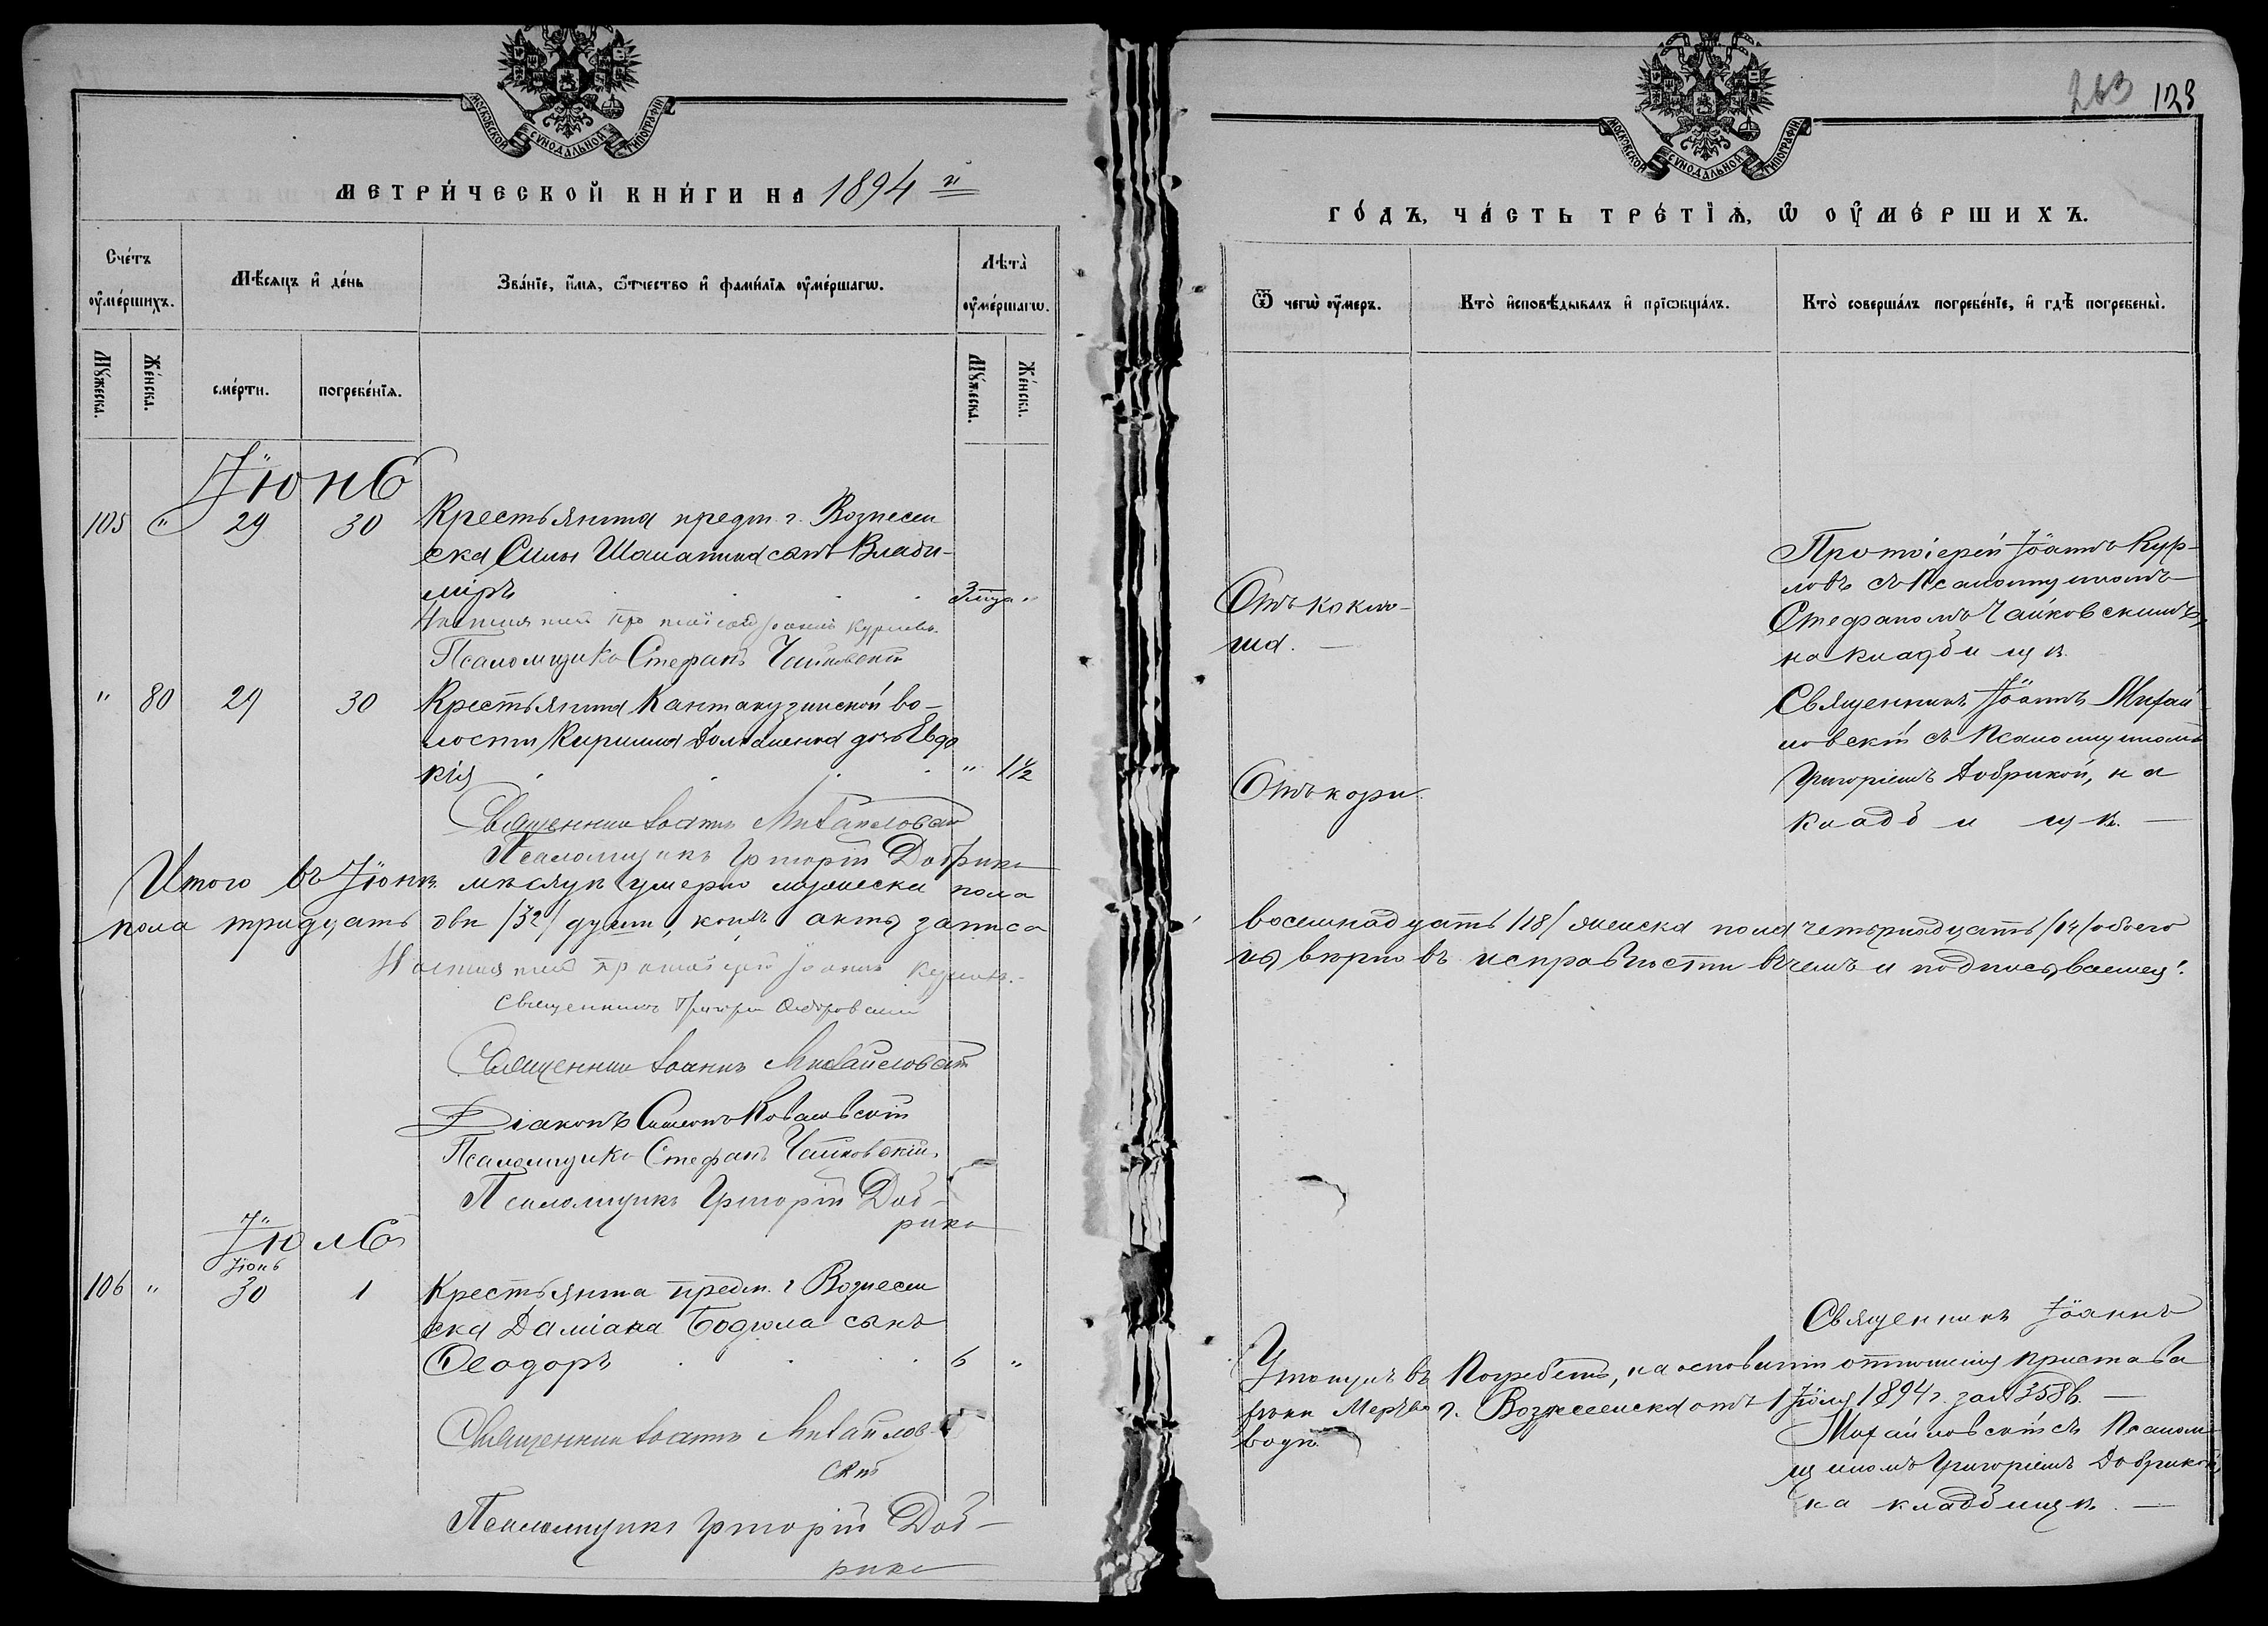 МОСКОВСКОЙ СѴНОДАЛЬНОЙ ТИПОГРАФІИ
МЕТРИ́ЧЕСКОЙ КНИ́ГИ НА 1894 й
Сче́тъ оу҆ме́ршихъ.
Мѣ́сяцъ и҆ де́нь
Зва́нїе, и҆́мя, ѻ҆́тчество и҆ фами́лїя оу҆ме́ршагѡ.
Лѣта̀ оу҆ме́ршагѡ.
Мꙋ́жеска.
Же́нска.
сме́рти.
погребе́нїѧ.
Мꙋ́жеска.
Же́нска.
Іюнь
105 " 29 30 Крестьянина предм. г. Вознесен
ска Силы сынъ Влади-
міръ . . . 3 "
Псаломщикъ Стефанъ Чайковскій
" 80 29 30 Крестьянина Кантакузинской во-
лости Кирилла дочь Евдо
кія . . . . " 1½
Священникъ Іоаннъ Михайловскій
Псаломщикъ Григорій Добрика
Итого въ Іюнѣ мѣсяцѣ умерло мужеска пола
пола тридцать двѣ /32/ души, коихъ акты записа
Настоятель Протоіерей Іоаннъ Курловъ.
Священникъ Григорій
Священникъ Іоаннъ Михайловскій
Діаконъ Симеонъ Ковалевскій
Псаломщикъ Стефанъ Чайковскій.
Псаломщикъ Григорій Доб-
рика
Іюль
Іюнь
106 " 30 1 Крестьянина предм. г. Вознесен
ска Даміана Бодюла сынъ
Ѳеодоръ . . . . 6 "
Священникъ Іоаннъ Михайлов-
скій
Псаломщикъ Григорій Доб-
рика
263 123
МОСКОВСКОЙ СѴНОДАЛЬНОЙ ТИПОГРАФІИ
ГО́ДЪ, ЧА́СТЬ ТРЕ́ТЇѦ, Ѡ҆ ОУ҆МЕ́РШИХЪ.
Ѿ чегѡ̀ оу҆́меръ.
Кто̀ и҆сповѣ́дывалъ и҆ прїѡбща́лъ.
Кто̀ соверша́лъ погребе́нїе, и҆ гдѣ̀ погребены̀.
Протоіерей Іоаннъ Кур-
ловъ съ Псаломщикомъ
Стефаномъ Чайковскимъ,
на кладбищѣ.
Отъ коклю-
ша. —
Священникъ Іоаннъ Михай
ловскій съ Псаломщикомъ
Григоріемъ Добрикой, на
кладбищѣ. —
Отъ кори.
восемнадцать /18/ женска пола четырнадцать /14/ обоего
ны вѣрно въ исправности въ чемъ и подписываемся:
Священникъ Іоаннъ
Утонулъ въ Погребенъ, на основаніи отношенія пристава
рѣки Мертво г. Вознесенска отъ 1 Іюля 1894 г. за № 3586. —
воды
Михайловскій съ Псалом-
щикомъ Григоріемъ Добрикой,
на кладбищѣ. —